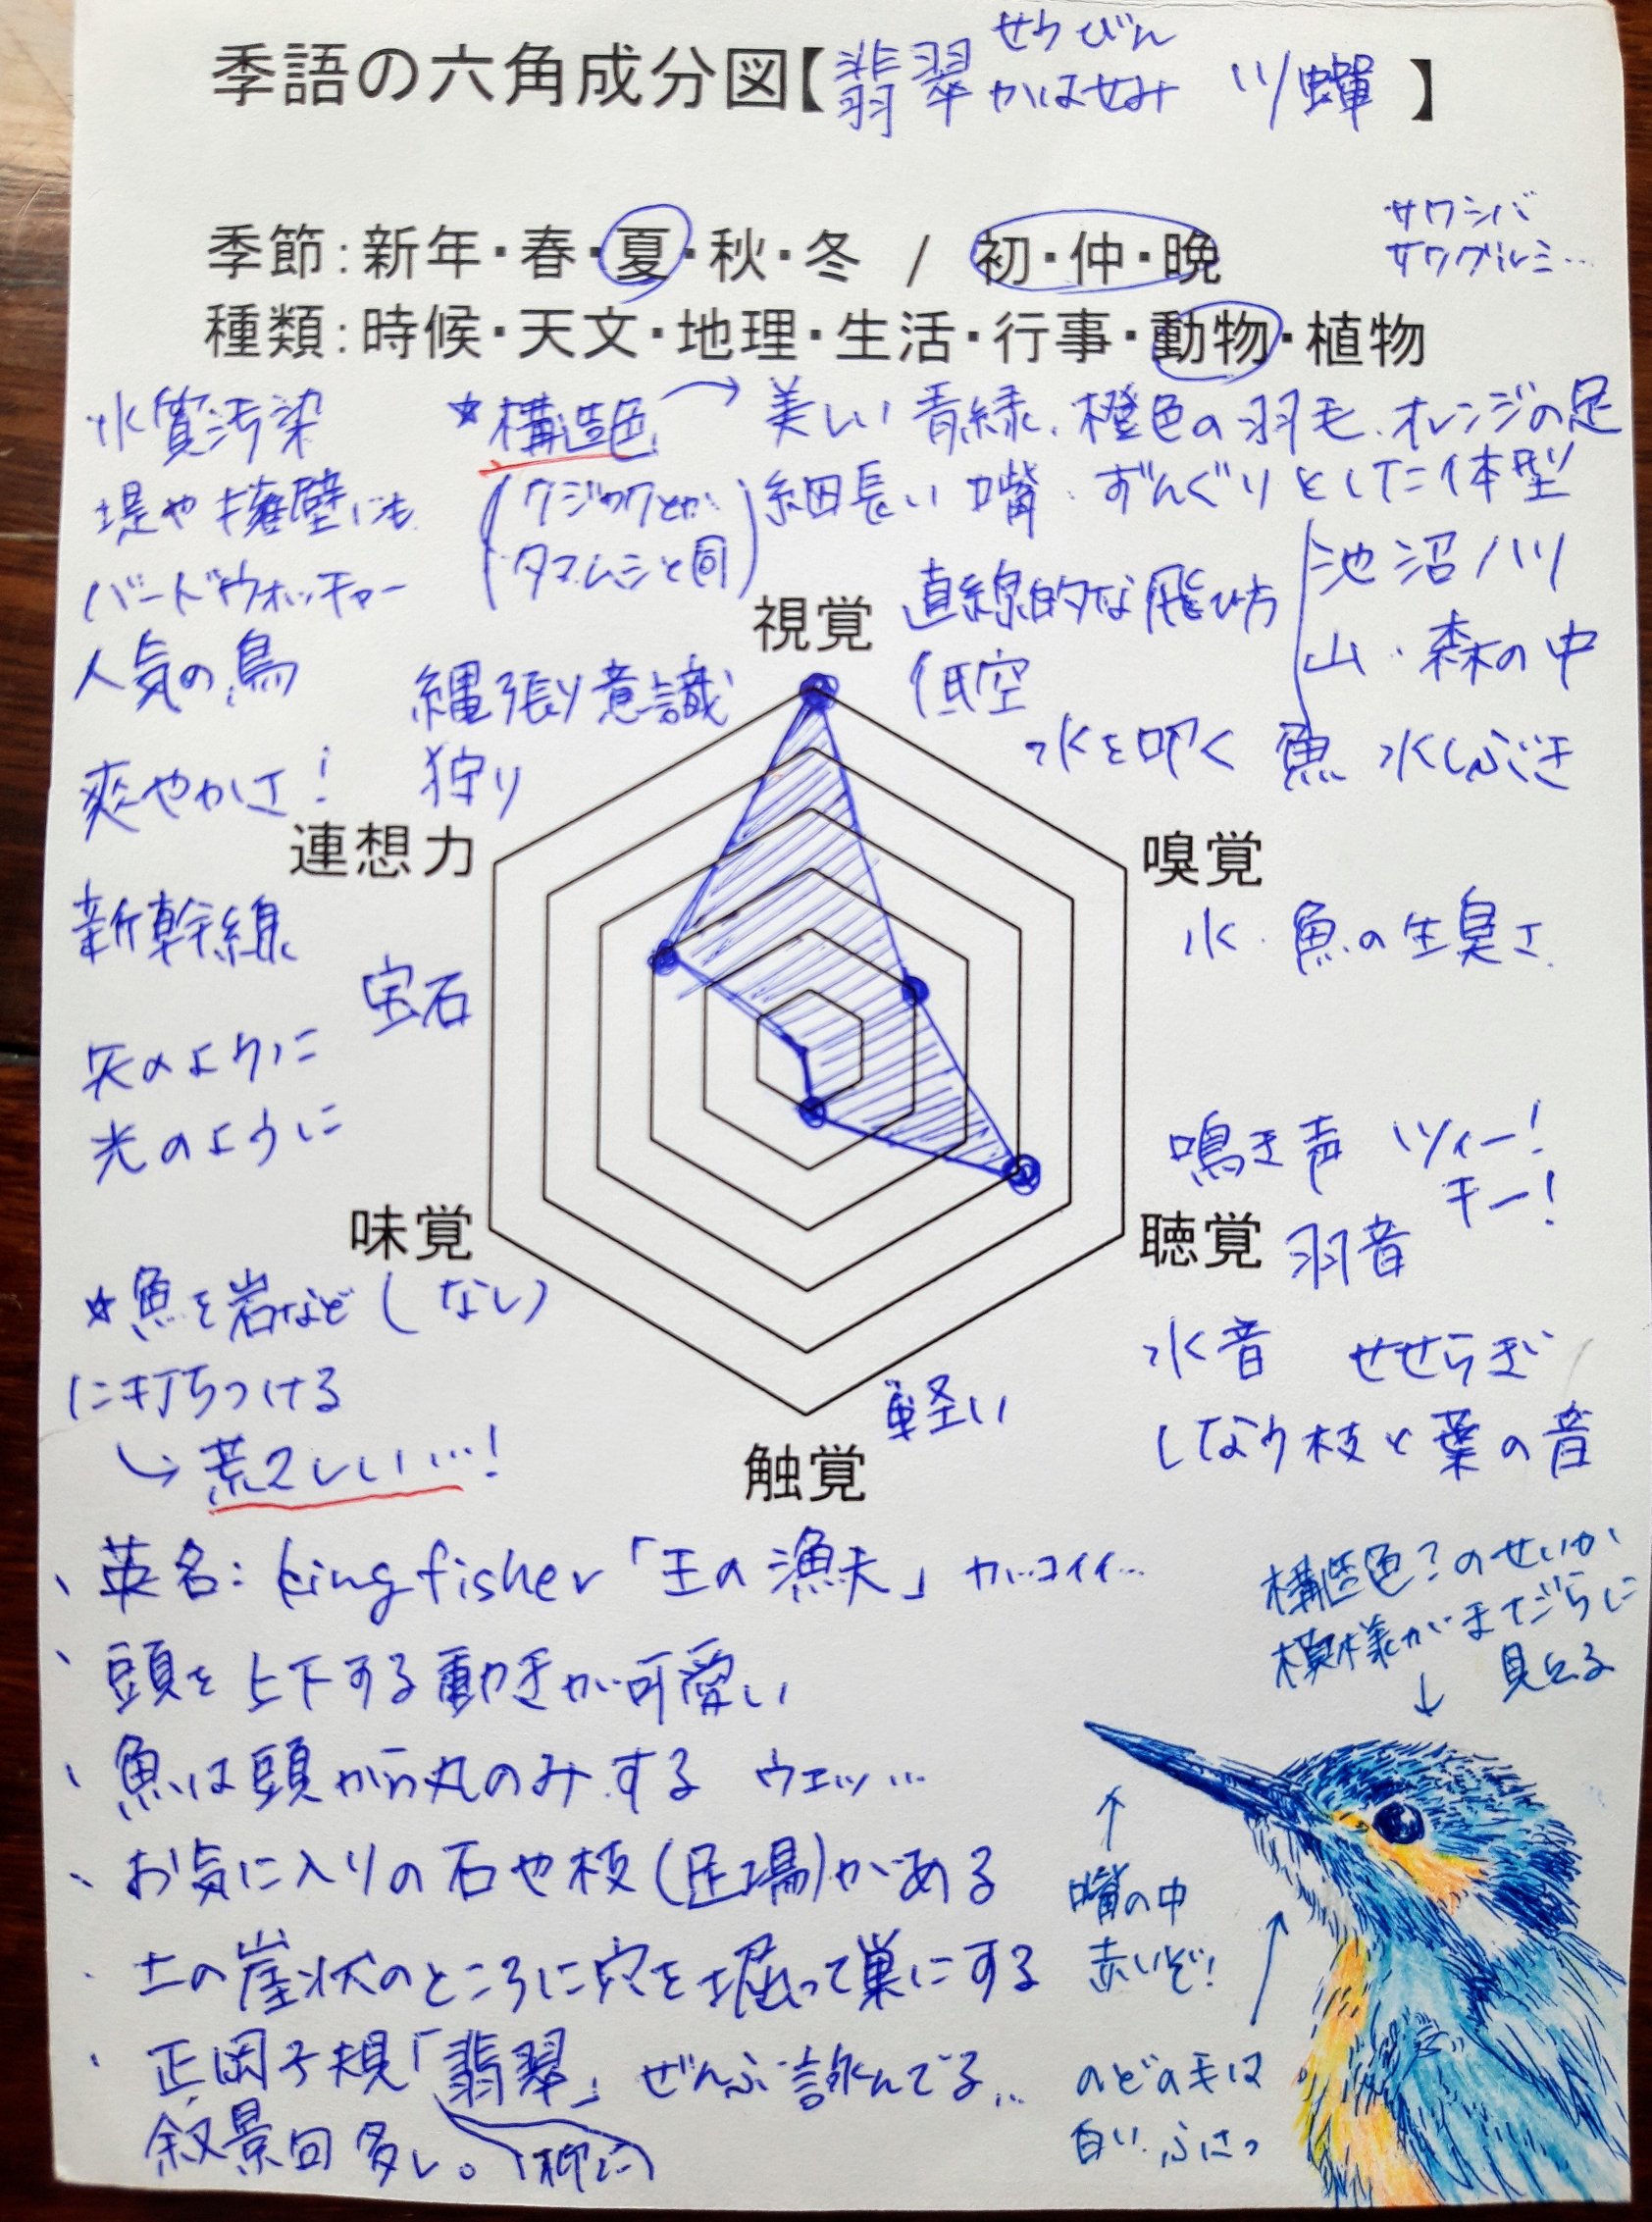 季語の六角成分図【翡翠 せうびん かはせみ 川蟬】
サワシバ
サワグルミ…
季節:新年・春・夏・秋・冬 / 初・仲・晩
種類:時候・天文・地理・生活・行事・動物・植物
水質汚染
堤や擁壁にも
バードウォッチャー
人気の鳥
爽やかさ!
☆構造色→
(クジャクとか
タマムシと同)
美しい青緑、橙色の羽毛、オレンジの足
細長い嘴、ずんぐりとした体型
直線的な飛び方
低空
池 沼 川
山・森の中
水を叩く 魚 水しぶき
視覚
縄張り意識
狩り
連想力
新幹線
宝石
矢のように
光のように
嗅覚
水・魚の生臭さ
鳴き声 ツィー!
キー!
聴覚
羽音
水音 せせらぎ
しなう枝と葉の音
味覚
(なし)
☆魚を岩など
に打ちつける
↳荒々しい…!
軽い
触覚
、英名:kingfisher「王の漁夫」カッコイイ…
、頭を上下する動きが可愛い
、魚は頭から丸のみする ウエッ…
、お気に入りの石や枝(足場)がある
・土の崖状のところに穴を掘って巣にする
・正岡子規「翡翠」ぜんぶ詠んでる…
叙景句多し。(柳に)
構造色?のせいか
模様がまだらに
↓ 見える
↑
嘴の中
赤いぞ!
のどの毛は
白い、ふさっ